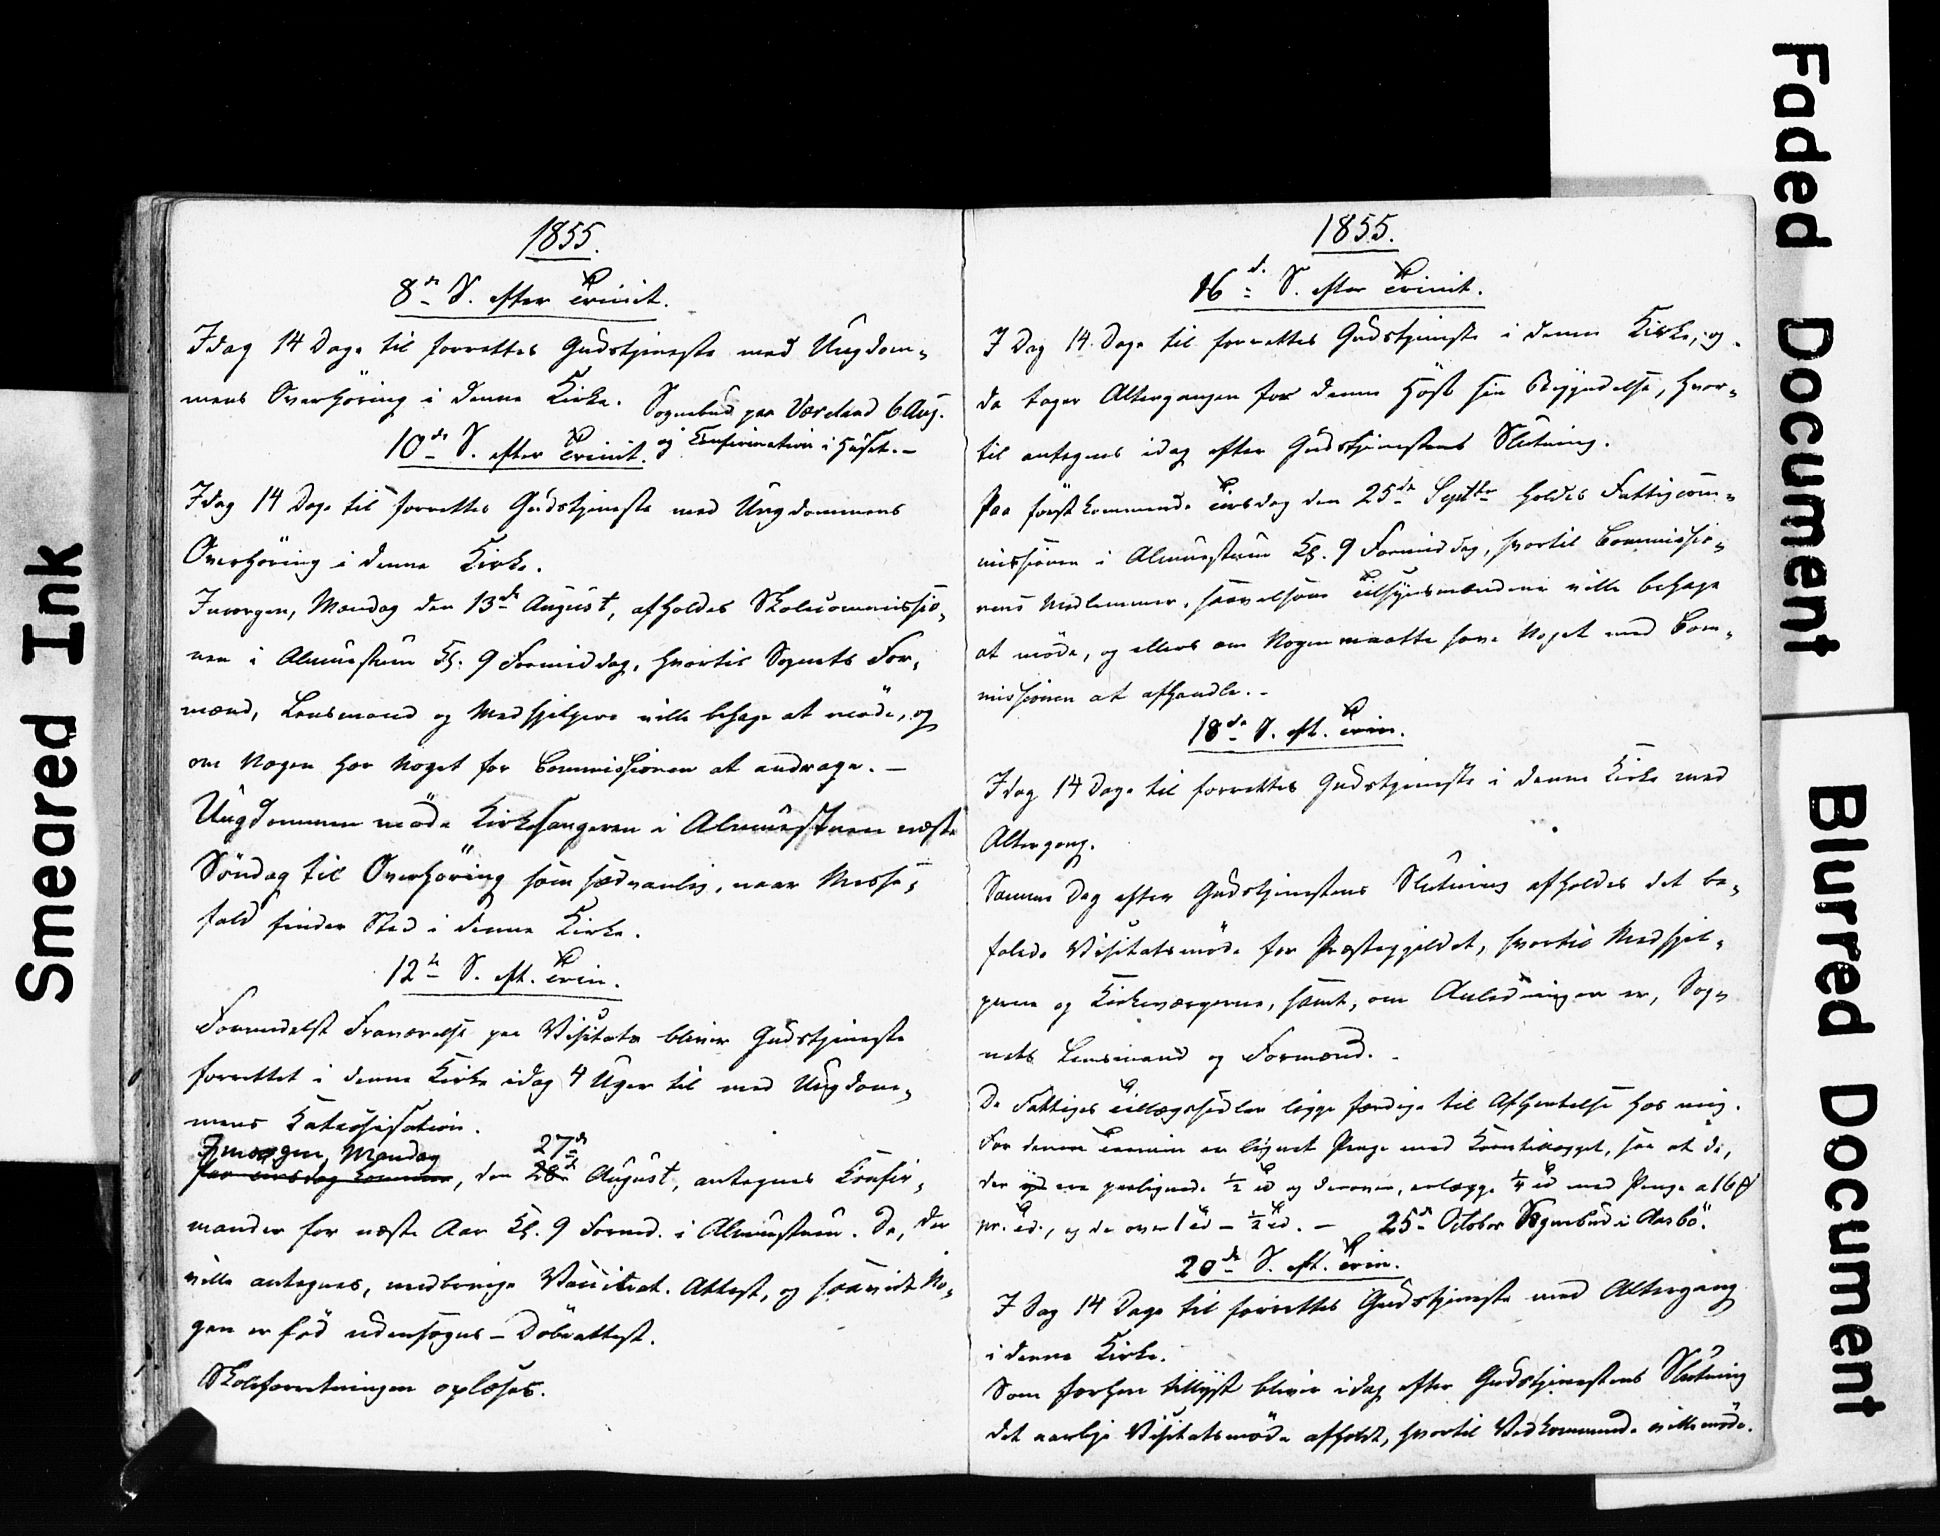 1855.
8de S. efter Trinit.
Idag 14 Dage til forrettes Gudstjeneste med Ungdom-
mens Overhöring i denne Kirke. Sognebud paa Værland 6 Aug.
og Confirmation i Huset.-
10de S. efter Trinit.
Idag 14 Dage til forrettes Gudstjeneste med Ungdommens
Overhöring i denne Kirke.
Imorgen, Mandag den 13de August, afholdes Skolecommissio-
nen i Almuestuen Kl. 9 Formiddag, hvortil Sognets For-
mænd, Lensmand og Medhjelpere ville behage at möde, og
om Nogen har Noget for Commissionen at andrage. -
Ungdommen möde Kirkesangeren i Almuestuen næste
Söndag til Overhöring som sædvanlig, naar Messe-
fald finder Sted i denne Kirke.
12te S. eft. Trin.
Formedelst Fraværelse paa Visitats bliver Gudstjeneste
forrettet i denne Kirke idag 4 Uger til med Ungdom-
mens Katechisation.
Imorgen, Mandag 27de
paa Tirsdag kommer, den 28de August, antegnes Confir-
mander for næste Aar Kl. 9 Formd. i Almuestuen. De, der
ville antegnes, medbringe Vaccinat. Attest, og saavidt No-
gen er född udensogns - Döbeattest.
Skoleforretningen oplæses.
1855.
16de S. efter Trinit.
I Dag 14 Dage til forrettes Gudstjeneste i denne Kirke, og
da tager Altergangen for denne Höst sin Begyndelse, hvor-
til antegnes idag efter Gudstjenestens Slutning.
Paa förstkommende Tirsdag den 25de Septbr holdes Fattigcom-
missionen i Almuestuen Kl. 9 Formiddag, hvortil Commissio-
nens Medlemmer, saavelsom Tilsynsmændene ville behage
at möde, og ellers om Nogen maatte have Noget med Com-
missionen at afhandle. -
18de S. eft. Trin.
Idag 14 Dage til forrettes Gudstjeneste i denne Kirke med
Altergang.
Samme Dag efter Gudstjenestens Slutning afholdes det be-
falede Visitatsmöde for Præstegjeldet, hvortil Medhjel-
perne og Kirkeværgerne, samt, om Anledningen er, Sog-
nets Lensmand og Formænd. -
De Fattiges Tillægssedler ligge færdige til Afhentelse hos mig.
For denne Termin er lignet Penge med Korntillægget, saa at de,
der ere paalignede ½ Td og derover, erlægge ¼ Td med Penge a 16
pr. Td., og de over 1 Td - ½ Td. - 25de October Sognebud i Aasbö.
20de S. eft. Trin.
I Dag 14 Dage til forrettes Gudstjeneste med Altergang
i denne Kirke.
Som forhen tillyst bliver idag efter Gudstjenestens Slutning
det aarlige Visitatsmöde afholdt, hvortil Vedkommende ville möde.
Smeared Ink
Faded Document
Blurred Document